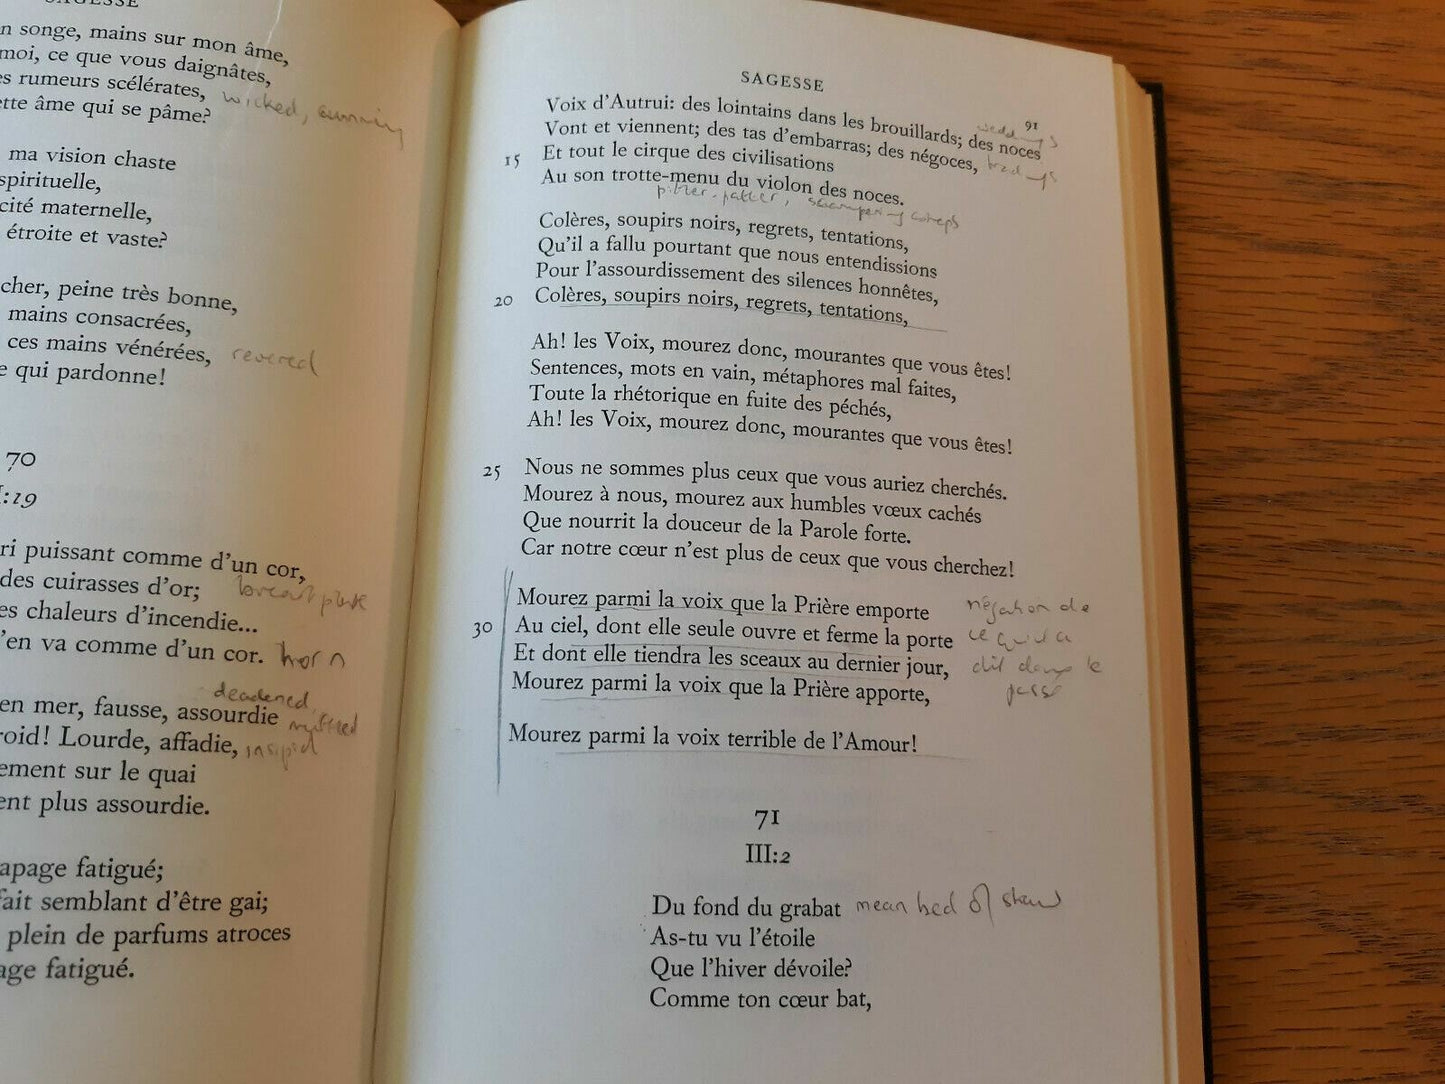 SAGESSE
n songe, mains sur mon âme,
moi, ce que vous daignâtes,
es rumeurs scélérates, wicked, cunning
ette âme qui se pâme?
ma vision chaste
spirituelle,
cité maternelle,
étroite et vaste?
cher, peine très bonne,
mains consacrées,
ces mains vénérées, revered
e qui pardonne!
70
I:19
ri puissant comme d'un cor,
des cuirasses d'or; breast plate
es chaleurs d'incendie...
'en va comme d'un cor. horn
deadened,
en mer, fausse, assourdie muffled
roid! Lourde, affadie, insipid
ement sur le quai
ent plus assourdie.
apage fatigué;
fait semblant d'être gai;
plein de parfums atroces
age fatigué.
SAGESSE
91
Voix d'Autrui: des lointains dans les brouillards; des noces weddings
Vont et viennent; des tas d'embarras; des négoces,
15 Et tout le cirque des civilisations
Au son trotte-menu du violon des noces.
pitter-patter, scampering
Colères, soupirs noirs, regrets, tentations,
Qu'il a fallu pourtant que nous entendissions
Pour l'assourdissement des silences honnêtes,
20 Colères, soupirs noirs, regrets, tentations,
Ah! les Voix, mourez donc, mourantes que vous êtes!
Sentences, mots en vain, métaphores mal faites,
Toute la rhétorique en fuite des péchés,
Ah! les Voix, mourez donc, mourantes que vous êtes!
25 Nous ne sommes plus ceux que vous auriez cherchés.
Mourez à nous, mourez aux humbles vœux cachés
Que nourrit la douceur de la Parole forte.
Car notre cœur n'est plus de ceux que vous cherchez!
Mourez parmi la voix que la Prière emporte négation de
30 Au ciel, dont elle seule ouvre et ferme la porte ce qu'il a
Et dont elle tiendra les sceaux au dernier jour, dit dans le
Mourez parmi la voix que la Prière apporte, passé
Mourez parmi la voix terrible de l'Amour!
71
III:2
Du fond du grabat mean bed of straw
As-tu vu l'étoile
Que l'hiver dévoile?
Comme ton cœur bat,